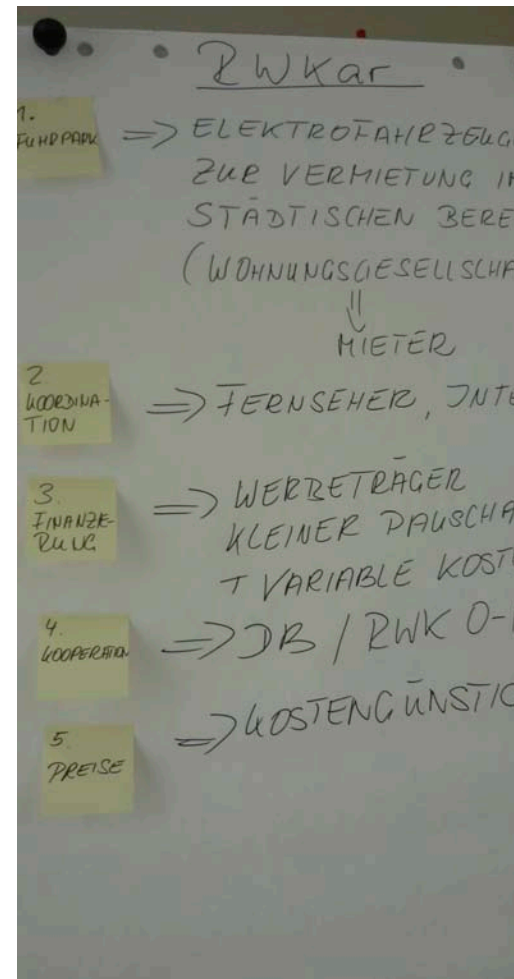 RWKar
1.
FUHRPARK
=> ELEKTROFAHRZEUG
ZUR VERMIETUNG IN
STÄDTISCHEN BERE
(WOHNUNGSGESELLSCHA
MIETER
2.
KOORDINA-
TION
=> FERNSEHER, INTE
3.
FINANZE-
RUNG
=> WERBETRÄGER
KLEINER PAUSCHA
+ VARIABLE KOST
4.
KOOPERATION
=> DB / RWK O-
5.
PREISE
=> KOSTENGÜNSTIG